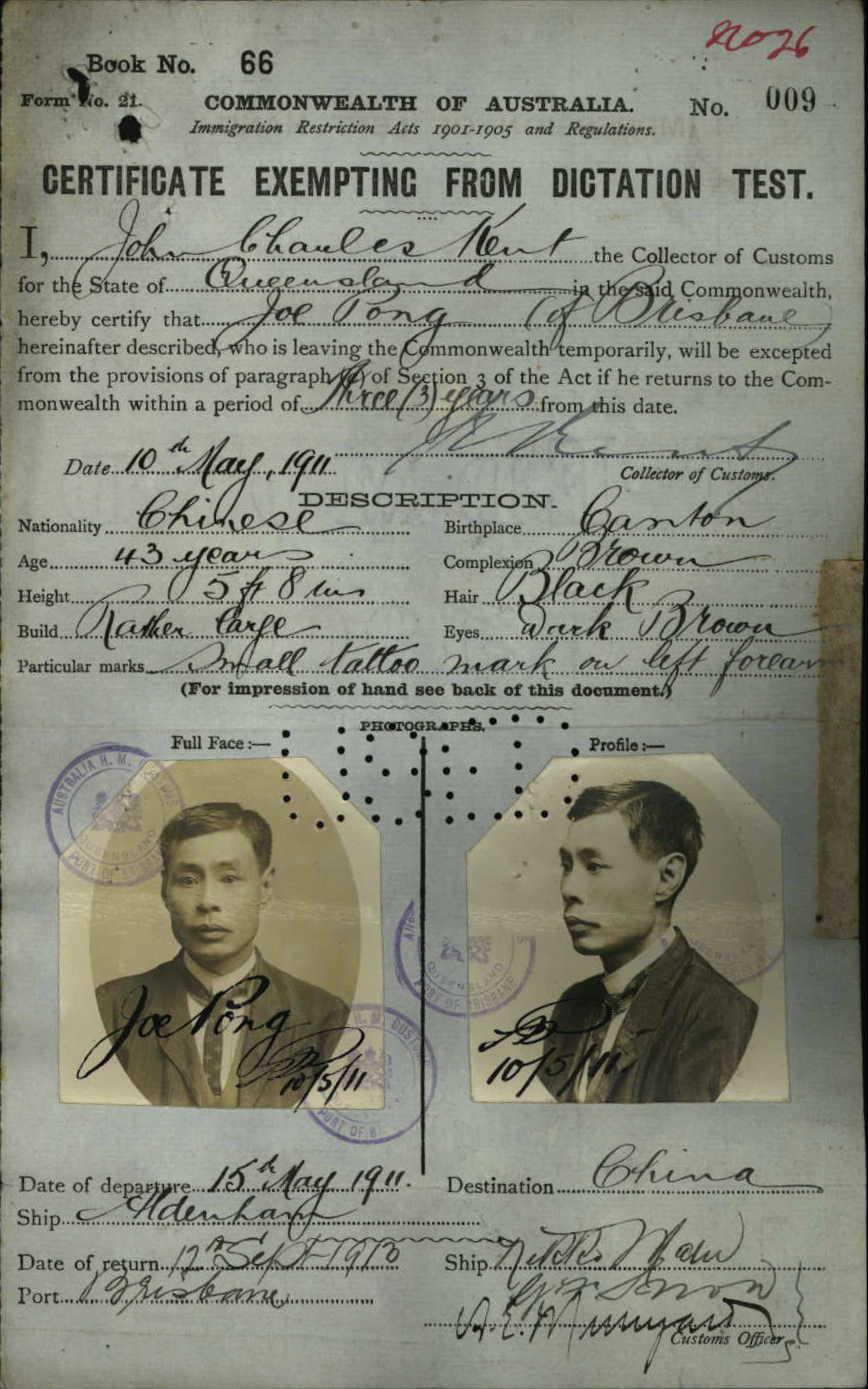 Book No. 66
Form No. 21.
COMMONWEALTH OF AUSTRALIA. No. 009
Immigration Restriction Acts 1901-1905 and Regulations.
CERTIFICATE EXEMPTING FROM DICTATION TEST.
I, John Charles Kent the Collector of Customs
for the State of Queensland in the said Commonwealth,
hereby certify that Joe Pong (of Brisbane)
hereinafter described, who is leaving the Commonwealth temporarily, will be excepted
from the provisions of paragraph (a) of Section 3 of the Act if he returns to the Com-
monwealth within a period of Three (3) years from this date.
Date 10th May, 1911.
Collector of Customs.
DESCRIPTION.
Nationality Chinese Birthplace Canton
Age 43 years Complexion Brown
Height 5 ft 8 ins Hair Black
Build Rather large Eyes Dark Brown
Particular marks Small tattoo mark on left forearm
(For impression of hand see back of this document.)
PHOTOGRAPHS.
Full Face:— Profile:—
AUSTRALIA H. M. CUSTOMS QUEENSLAND PORT OF BRISBANE
QUEENSLAND PORT OF BRISBANE
Joe Pong
10/5/11
10/5/11.
H. M. CUSTOMS PORT OF
Date of departure 15th May 1911. Destination China
Ship Aldenham
Date of return 12th Sept 1913 Ship Nikko Maru
Port Brisbane
Customs Officer